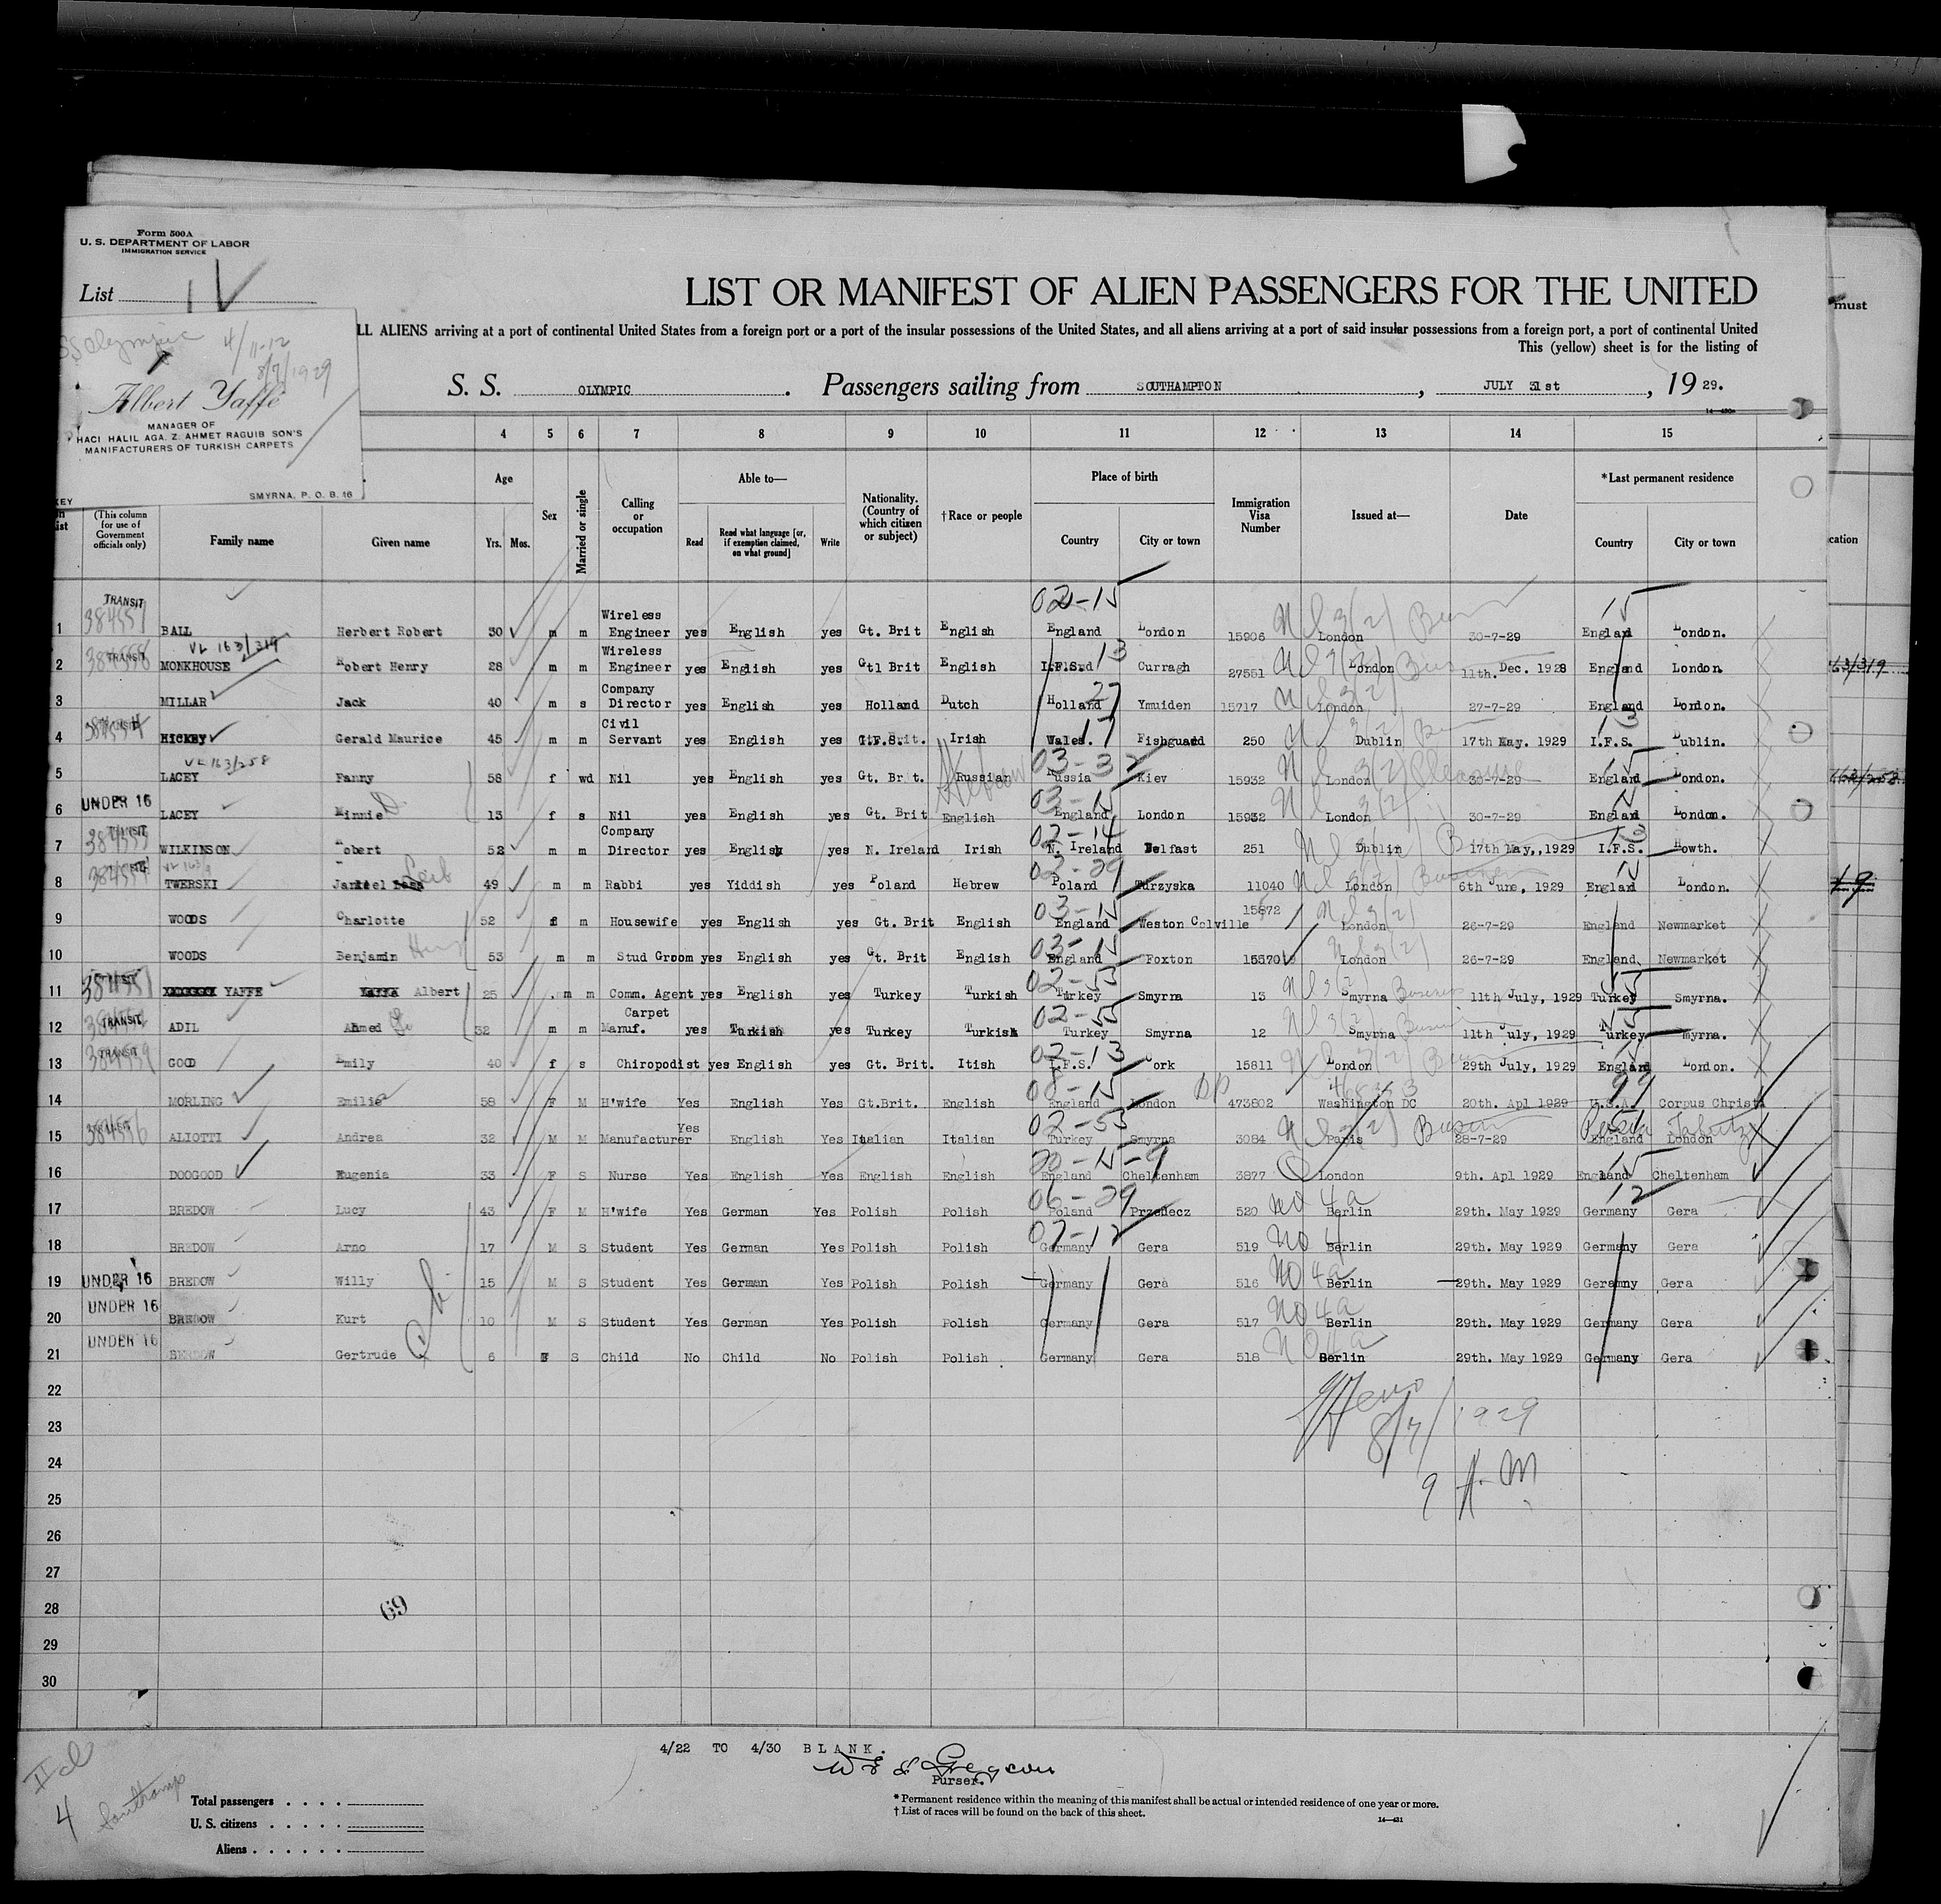 Form 500A
U. S. DEPARTMENT OF LABOR
IMMIGRATION SERVICE
List
LIST OR MANIFEST OF ALIEN PASSENGERS FOR THE UNITED
LL ALIENS arriving at a port of continental United States from a foreign port or a port of the insular possessions of the United States, and all aliens arriving at a port of said insular possessions from a foreign port, a port of continental United
This (yellow) sheet is for the listing of
must
SS Olympic 4/11-12
8/7/1929
Albert Yaffe
MANAGER OF
HACI HALIL AGA. Z. AHMET RAGUIB SON'S
MANUFACTURERS OF TURKISH CARPETS
SMYRNA, P. O. B. 16
S. S. OLYMPIC. Passengers sailing from SOUTHAMPTON, JULY 31st, 19 29.
4 5 6 7 8 9 10 11 12 13 14 15
(This column for use of Government officials only) Family name Given name Age Yrs. Mos. Sex Married or single Calling or occupation Able to— Read Read what language [or, if exemption claimed, on what ground] Write Nationality. (Country of which citizen or subject) †Race or people Place of birth Country City or town Immigration Visa Number Issued at— Date *Last permanent residence Country City or town
cation
1 TRANSIT BALL Herbert Robert 30 m m Wireless Engineer yes English yes Gt. Brit English England London 02-15 15906 London 30-7-29 England London.
VL 163/319
2 TRANSIT MONKHOUSE Robert Henry 28 m m Wireless Engineer yes English yes Gtl Brit English I.F.S. 13 Curragh 27551 London 11th. Dec. 1928 England London
3 MILLAR Jack 40 m s Company Director yes English yes Holland Dutch Holland 27 Ymuiden 15717 London 27-7-29 England London.
4 HICKEY Gerald Maurice 45 m m Civil Servant yes English yes Irish Wales. 17 Fishguard 250 Dublin 17th May. 1929 I.F.S. Dublin.
VL 163/258
5 LACEY Fanny 58 f wd Nil yes English yes Gt. Brit. Russian Hebrew Russia Kiev 15932 London 30-7-29 England London.
6 UNDER 16 LACEY Minnie 13 f s Nil yes English yes Gt. Brit English 03-15 England London 15932 London 30-7-29 England London.
7 TRANSIT WILKINSON Robert 52 m m Company Director yes English yes N. Ireland Irish 02-14 N. Ireland Belfast 251 Dublin 17th May,,1929 I.F.S. Howth.
8 TWERSKI Leib 49 m m Rabbi yes Yiddish yes Poland Hebrew Poland Turzyska 11040 London 6th June, 1929 England London.
9 WOODS Charlotte 52 f m Housewife yes English yes Gt. Brit English 03-15 England Weston Colville 15872 London 26-7-29 England Newmarket
10 WOODS Benjamin 53 m m Stud Groom yes English yes Gt. Brit English 03-15 England Foxton London 26-7-29 England Newmarket
11 YAFFE Albert 25 m m Comm. Agent yes English yes Turkey Turkish 02-55 Turkey Smyrna 13 Smyrna 11th July, 1929 Turkey Smyrna.
12 TRANSIT ADIL Ahmed 32 m m Carpet Manuf. yes Turkish yes Turkey Turkish 02-55 Turkey Smyrna 12 Smyrna 11th July, 1929 Turkey myrna.
13 TRANSIT GOOD Emily 40 f s Chiropodist yes English yes Gt. Brit. Itish 02-13 I.F.S. Cork 15811 London 29th July, 1929 England London.
14 MORLING Emilie 58 F M H'wife Yes English Yes Gt.Brit. English England London 473802 Washington DC 20th. Apl 1929 U.S.A. Corpus Christi
15 ALIOTTI Andrea 32 M M Manufacturer Yes English Yes Italian Italian 02-55 Turkey Smyrna 3084 Paris 28-7-29 England London
16 DOOGOOD Eugenia 33 F S Nurse Yes English Yes English English England Cheltenham 3877 London 9th. Apl 1929 England Cheltenham
17 BREDOW Lucy 43 F M H'wife Yes German Yes Polish Polish 06-29 Poland Przedecz 520 No 4a Berlin 29th. May 1929 Germany Gera
18 BREDOW Arno 17 M S Student Yes German Yes Polish Polish 07-12 Germany Gera 519 Berlin 29th. May 1929 Germany Gera
19 UNDER 16 BREDOW Willy 15 M S Student Yes German Yes Polish Polish Germany Gera 516 No 4a Berlin 29th. May 1929 Geramny Gera
20 UNDER 16 BREDOW Kurt 10 M S Student Yes German Yes Polish Polish Germany Gera 517 No 4a Berlin 29th. May 1929 Germany Gera
21 UNDER 16 Gertrude 6 F S Child No Child No Polish Polish Germany Gera 518 No 4a Berlin 29th. May 1929 Germany Gera
22
8/7/1929
23
24
9 A.M
25
26
27
28 69
29
30
4/22 TO 4/30 BLANK.
Purser.
IId
4 Southamp
Total passengers
U. S. citizens
Aliens
* Permanent residence within the meaning of this manifest shall be actual or intended residence of one year or more.
† List of races will be found on the back of this sheet.
14—431